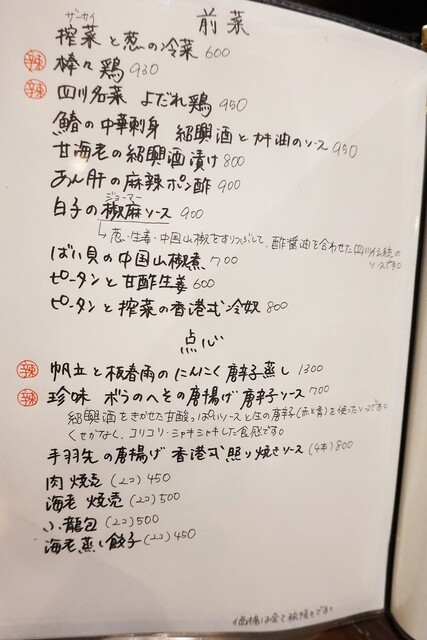 前菜
ザーサイ
搾菜と葱の冷菜 600
辣 棒々鶏 930
辣 四川名菜 よだれ鶏 950
鰆の中華刺身 紹興酒とカキ油のソース 950
甘海老の紹興酒漬け 800
あん肝の麻辣ポン酢 900
ジョーマー
白子の椒麻ソース 900
葱・生姜・中国山椒をすりつぶして、酢醤油を合わせた四川伝統の
ソースです。
ばい貝の中国山椒煮 700
ピータンと甘酢生姜 600
ピータンと搾菜の香港式冷奴 800
点心
辣 帆立と板春雨のにんにく唐辛子蒸し 1300
辣 珍味 ボラのへその唐揚げ 唐辛子ソース 700
紹興酒をきかせた甘酸っぱいソースと生の唐辛子(赤と青)を使ったソースです。
くせがなく、コリコリ・シャキシャキした食感です。
手羽先の唐揚げ 香港式 照り焼きソース (4本) 800
肉 焼売 (2コ) 450
海老 焼売 (2コ) 500
小龍包 (2コ) 500
海老蒸し餃子 (2コ) 450
価格は全て税抜きです。